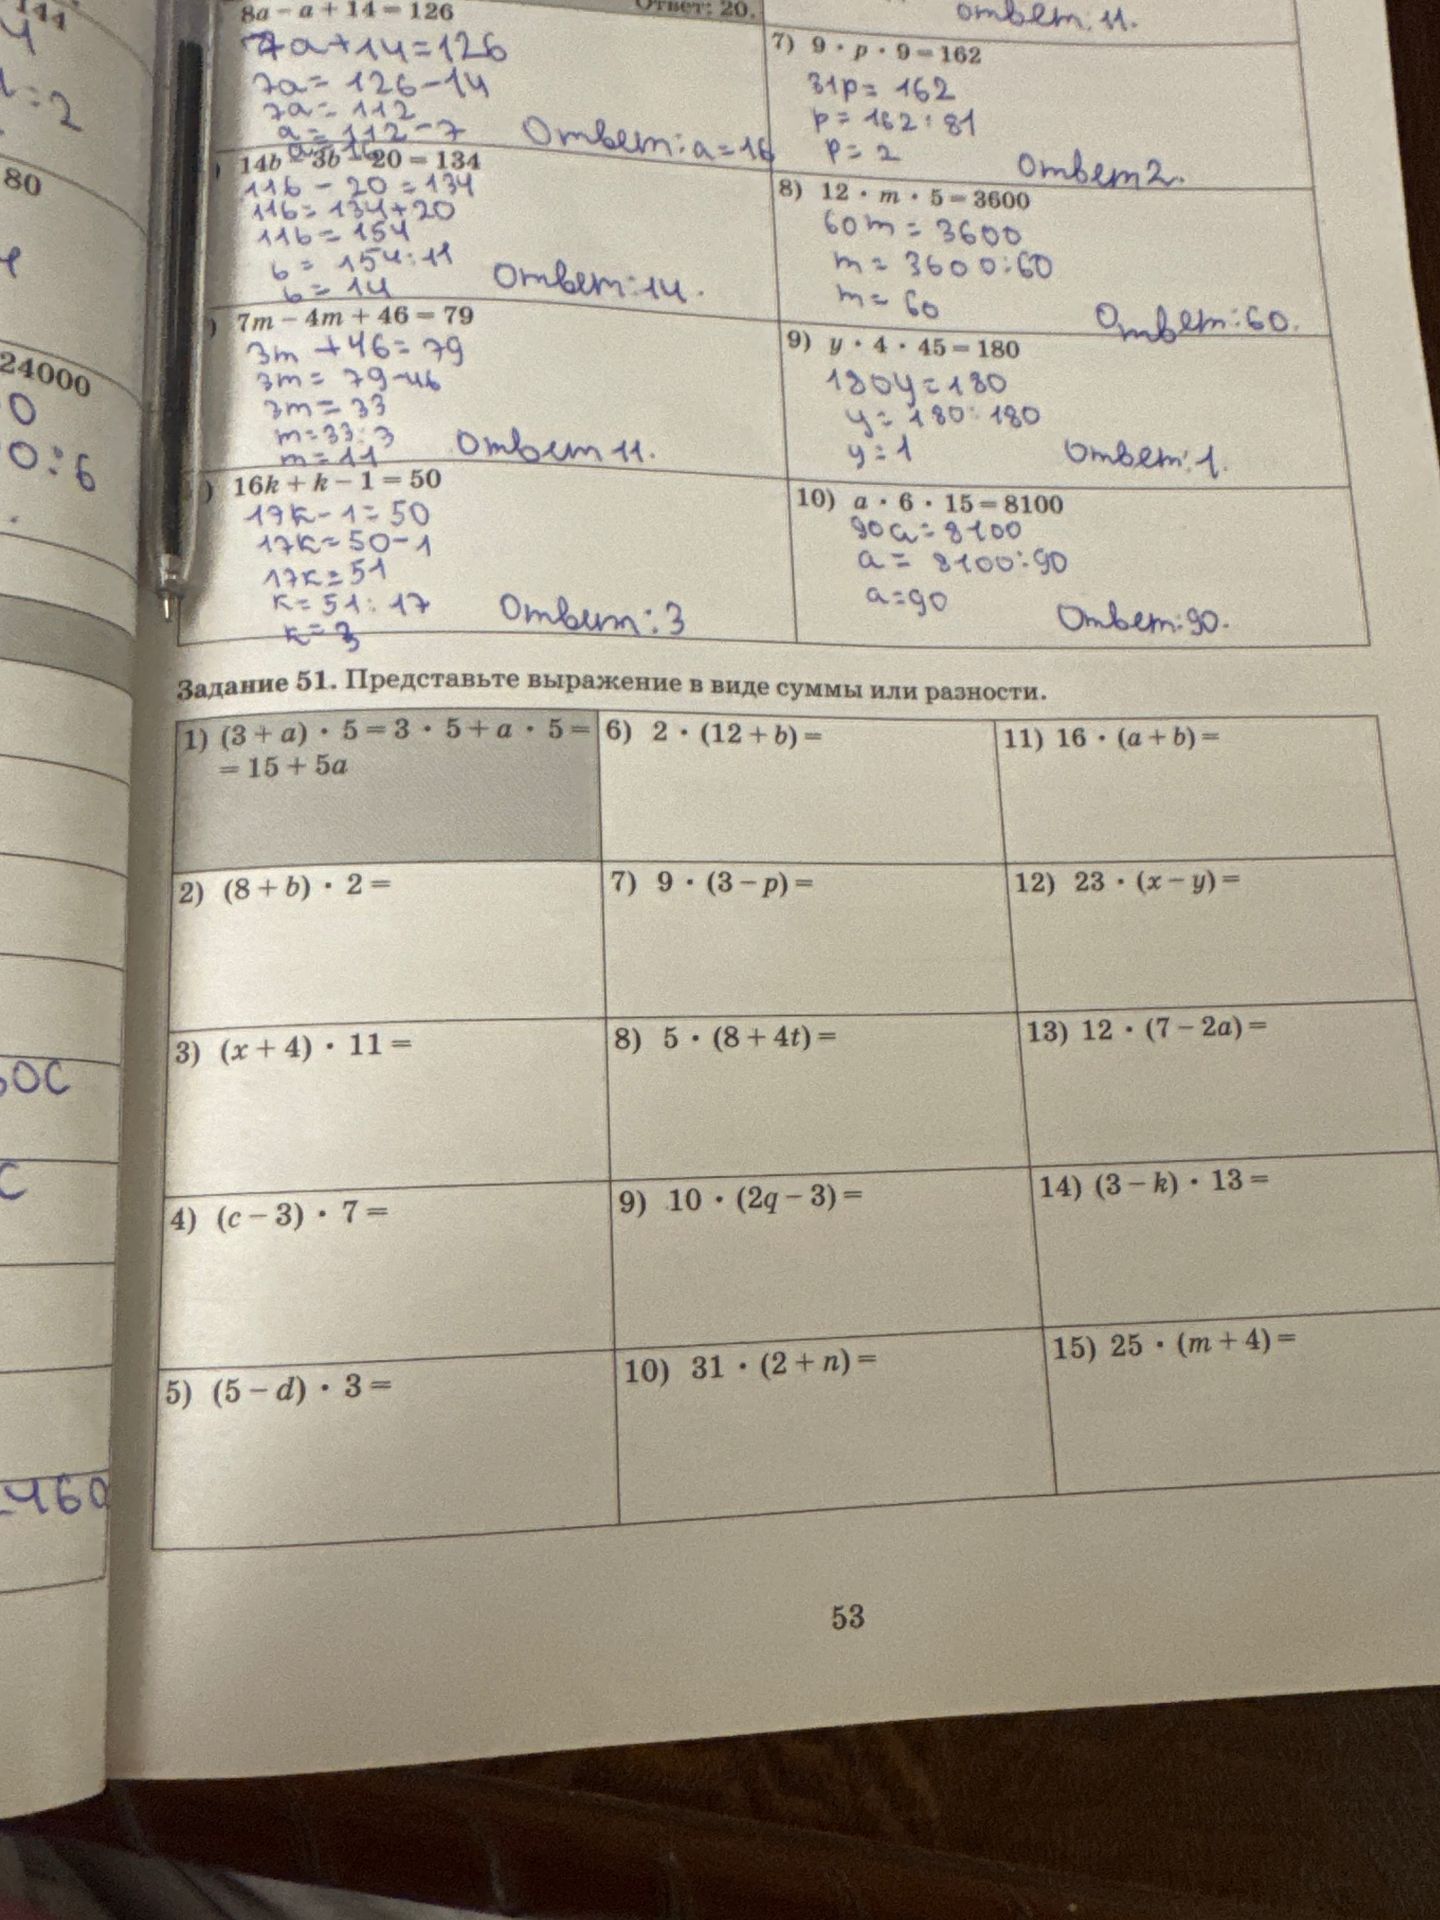 144
4
:2
80
24000
0
0:6
вос
с
460
8a − a + 14 = 126
Ответ: 20.
7a+14=126
7a=126-14
7a=112
a=112-7
a=16
Ответ: a=16
14b − 3b − 20 = 134
11b - 20 = 134
11b = 134+20
11b = 154
b = 154:11
b = 14
Ответ: 14.
7m − 4m + 46 = 79
3m + 46 = 79
3m = 79-46
3m = 33
m=33:3
m=11
Ответ 11.
16k + k − 1 = 50
17k - 1 = 50
17k=50-1
17k=51
k=51:17
k=3
Ответ: 3
Ответ. 11.
7) 9 · p · 9 = 162
81p= 162
p= 162:81
p= 2
Ответ 2.
8) 12 · m · 5 = 3600
60m = 3600
m = 3600:60
m = 60
Ответ: 60.
9) y · 4 · 45 = 180
180y=180
y=180:180
y=1
Ответ: 1.
10) a · 6 · 15 = 8100
90a = 8100
a = 8100:90
a=90
Ответ: 90.
Задание 51. Представьте выражение в виде суммы или разности.
1) (3 + a) · 5 = 3 · 5 + a · 5 =
= 15 + 5a
6) 2 · (12 + b) =
11) 16 · (a + b) =
2) (8 + b) · 2 =
7) 9 · (3 − p) =
12) 23 · (x − y) =
3) (x + 4) · 11 =
8) 5 · (8 + 4t) =
13) 12 · (7 − 2a) =
4) (c − 3) · 7 =
9) 10 · (2q − 3) =
14) (3 − k) · 13 =
5) (5 − d) · 3 =
10) 31 · (2 + n) =
15) 25 · (m + 4) =
53